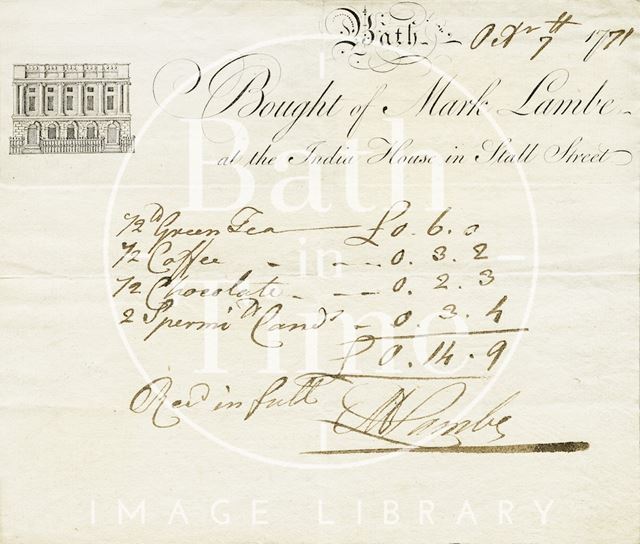 Bath Octr 7th 1771
Bought of Mark Lambe
at the India House in Stall Street
1/2 d Green Tea £0.6.0
1/2 Coffee 0.3.2
1/2 Chocolate 0.2.3
2 Spermi Cands 0.3.4
£0.14.9
Recd in full
M Lambe
Bath
in
Time
IMAGE LIBRARY